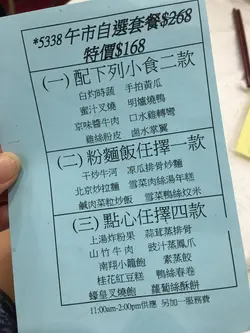 *5338 午市自選套餐$268
特價$168
(一) 配下列小食二款
白灼時蔬 手拍黃瓜
蜜汁叉燒 明爐燒鴨
京味醬牛肉 口水雞轉彎
雞絲粉皮 鹵水掌翼
(二) 粉麵飯任擇一款
干炒牛河 凉瓜排骨炒麵
北京炸醬麵 雪菜肉絲湯年糕
鹹肉菜粒炒飯 雪菜鴨絲炆米
(三) 點心任擇四款
上湯炸粉果 蒜茸蒸排骨
山竹牛肉 豉汁蒸鳳爪
南翔小籠飽 素蒸餃
桂花紅豆糕 鴨絲春卷
蠔皇叉燒飽 蘿蔔絲酥餅
11:00am-2:00pm供應 另加一服務費